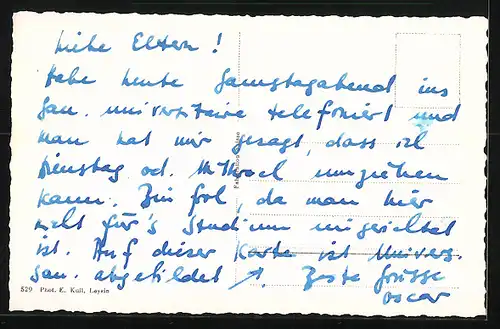 Liebe Eltern!
Habe heute Samstagabend ins
San. universitaire telefoniert und
man hat mir gesagt, dass ich
Dienstag od. Mittwoch umziehen
kann. Bin froh, da man hier
nicht für's Studium eingerichtet
ist. Auf dieser Karte ist Univers.
San. abgebildet ↗. Beste Grüsse
Oscar
529 Phot. E. Kull, Leysin